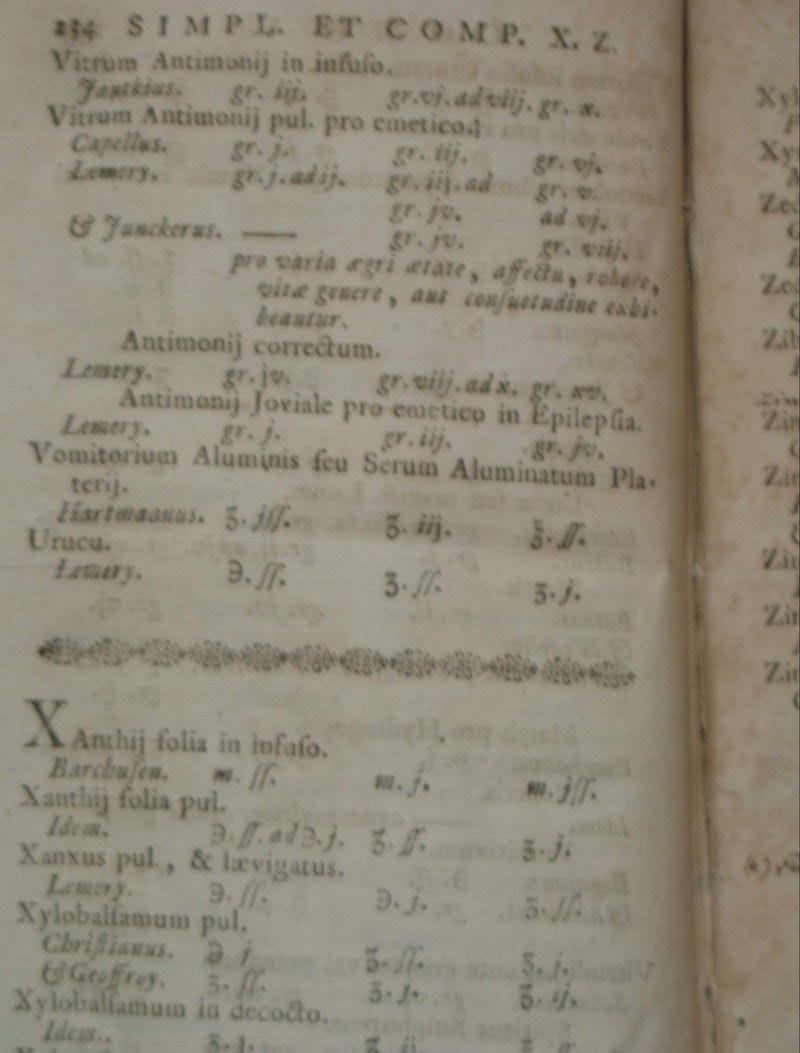 234 SIMPL. ET COMP. X. Z.
Vitrum Antimonij in infuſo.
Junkius. gr. iij. gr. vj. ad viij. gr. x.
Vitrum Antimonij pul. pro emetico.
Capellus. gr. j. gr. iij. gr. vj.
Lemery. gr. j. ad ij. gr. iij. ad gr. v.
gr. jv. ad vj.
& Junckerus. —— gr. jv. gr. viij.
pro varia ægri ætate, affectu, robore,
vitæ genere, aut conſuetudine exhi-
beantur.
Antimonij correctum.
Lemery. gr. jv. gr. viij. ad x. gr. xv.
Antimonij Joviale pro emetico in Epilepſia.
Lemery. gr. j. gr. iij. gr. jv.
Vomitorium Aluminis ſeu Serum Aluminatum Pla-
terij.
Hartmannus. ʒ. jſſ. ʒ. iij. ℥. ſſ.
Urucu.
Lemery. ℈. ſſ. ʒ. ſſ. ʒ. j.
XAnthij folia in infuſo.
Barchuſen. m. ſſ. m. j. m. jſſ.
Xanthij folia pul.
Idem. ℈. ſſ. ad ℈. j. ʒ. ſſ. ʒ. j.
Xanxus pul., & lævigatus.
Lemery. ℈. ſſ. ℈. j. ʒ. ſſ.
Xylobalſamum pul.
Chriſtianus. ℈ j ʒ. ſſ. ʒ. j.
& Geoffroy. ʒ. ſſ. ʒ. j. ʒ. ij.
Xylobalſamum in decocto.
Idem.
Xyl
Xy
Zed
Zed
Zib
Zin
Zin
Zin
Zin
Zin